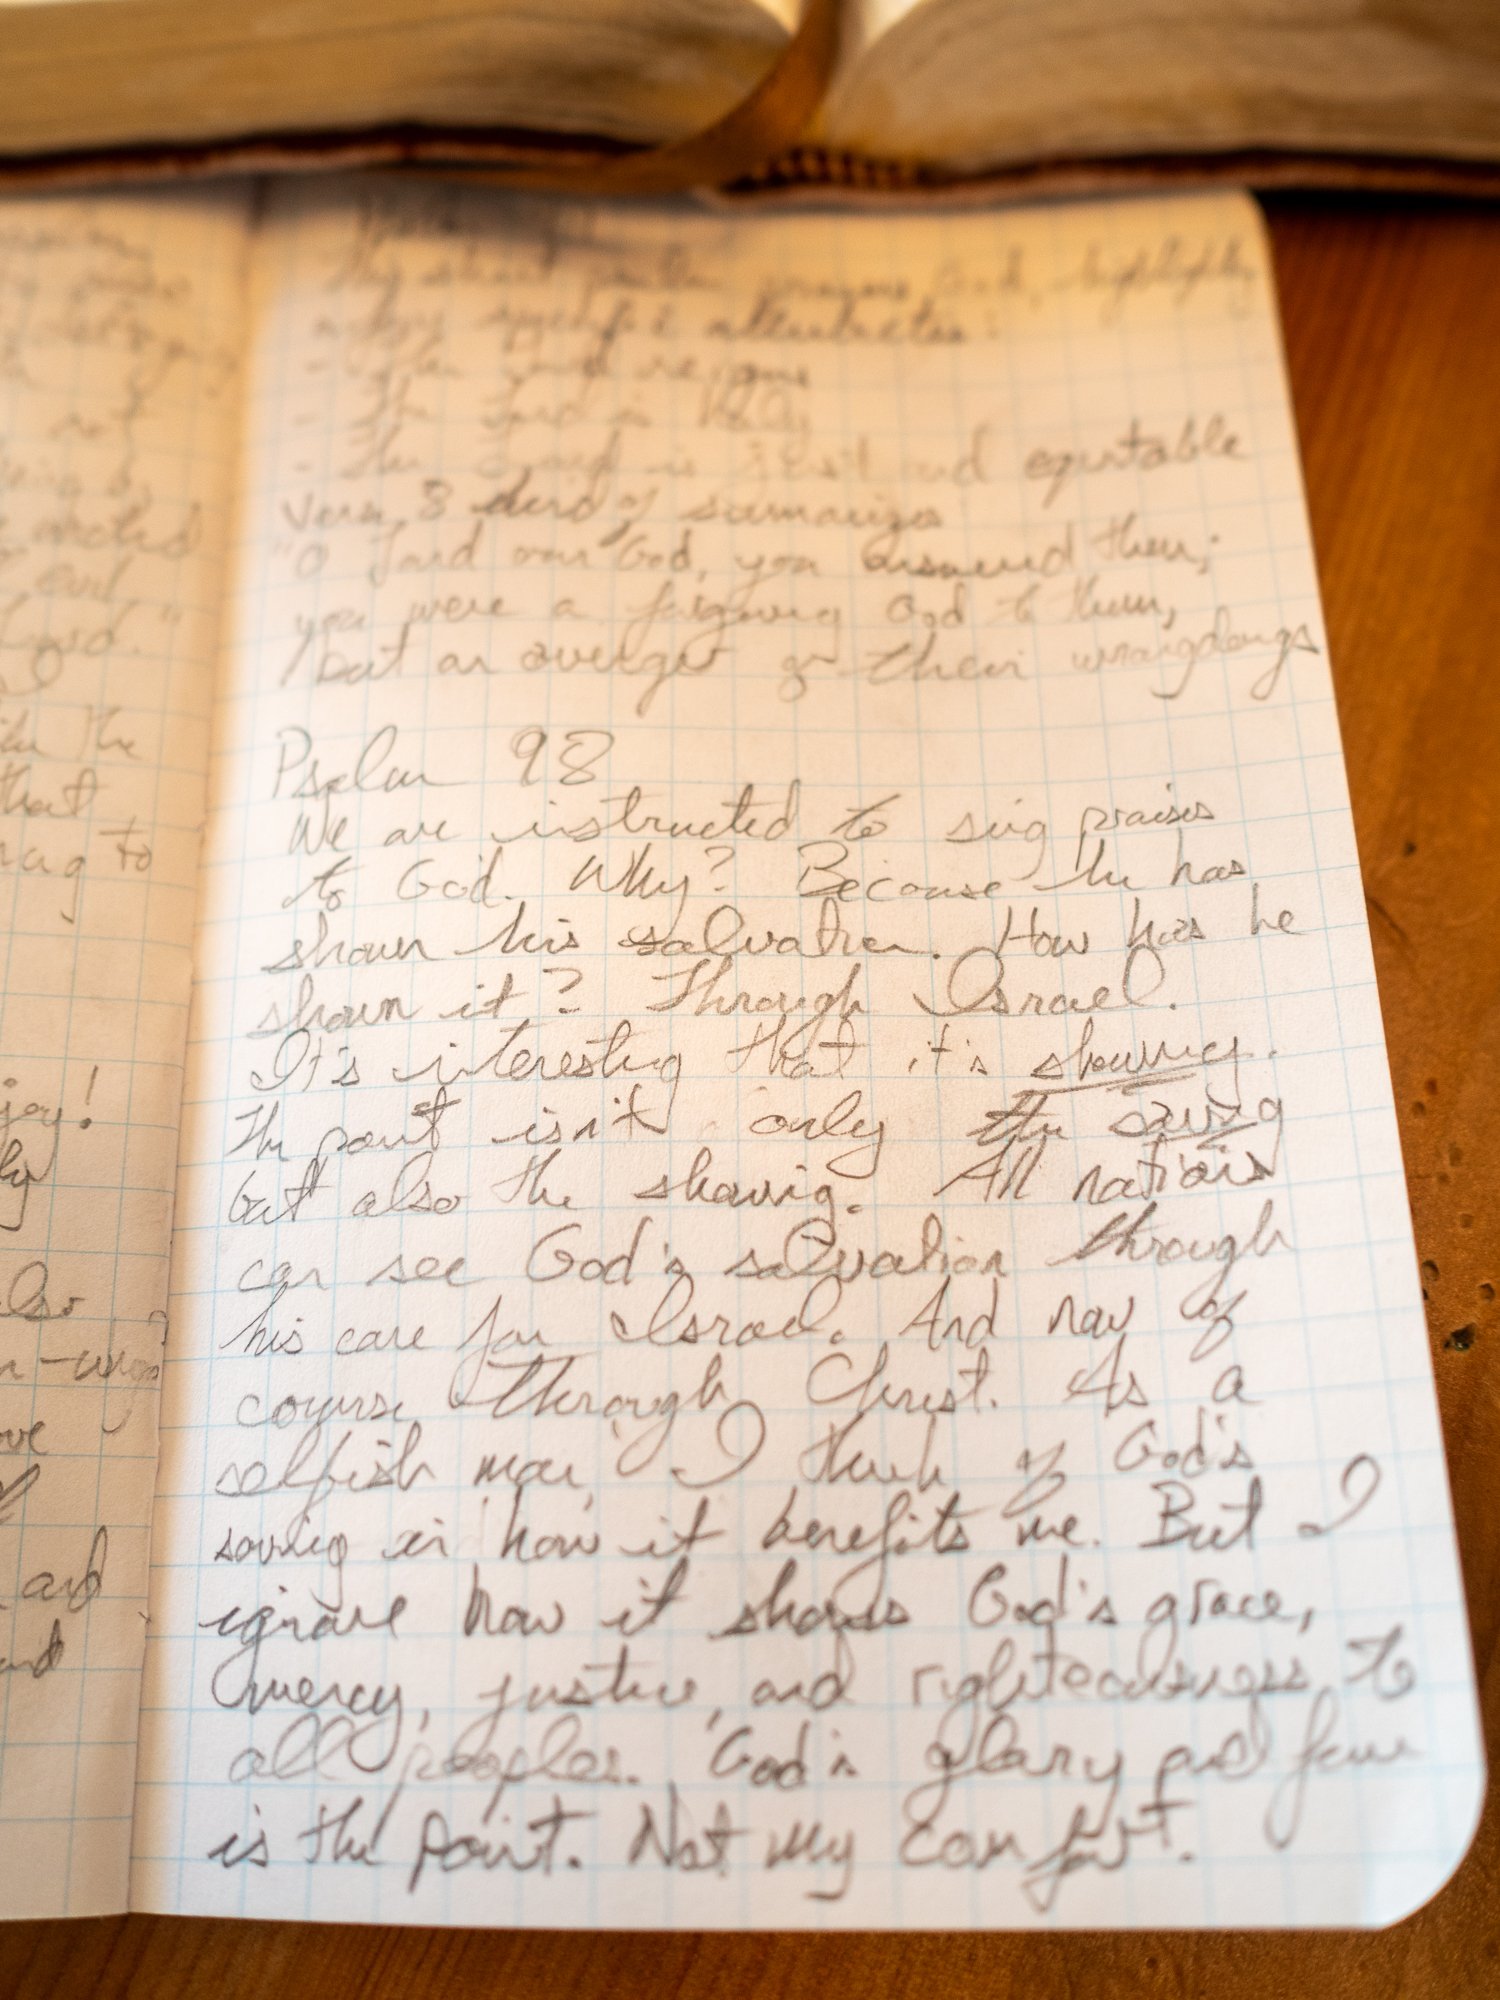 This short psalm praises God, highlighting
specific attributes:
- The Lord reigns
- The Lord is Holy
- The Lord is just and equitable
Verse 8 kind of summarizes
"O Lord our God, you answered them;
you were a forgiving God to them,
but an avenger of their wrongdoings
Psalm 98
We are instructed to sing praises
to God. Why? Because he has
shown his salvation. How has he
shown it? Through Israel.
It's interesting that it's showing.
The point isn't only the saving
but also the showing. All nations
can see God's salvation through
his care for Israel. And now of
course through Christ. As a
selfish man, I think of God's
saving in how it benefits me. But I
ignore how it shows God's grace,
mercy, justice, and righteousness to
all peoples. God's glory and fame
is the point. Not my comfort.
not
and
Lord."
the
that
to
joy!
also
and